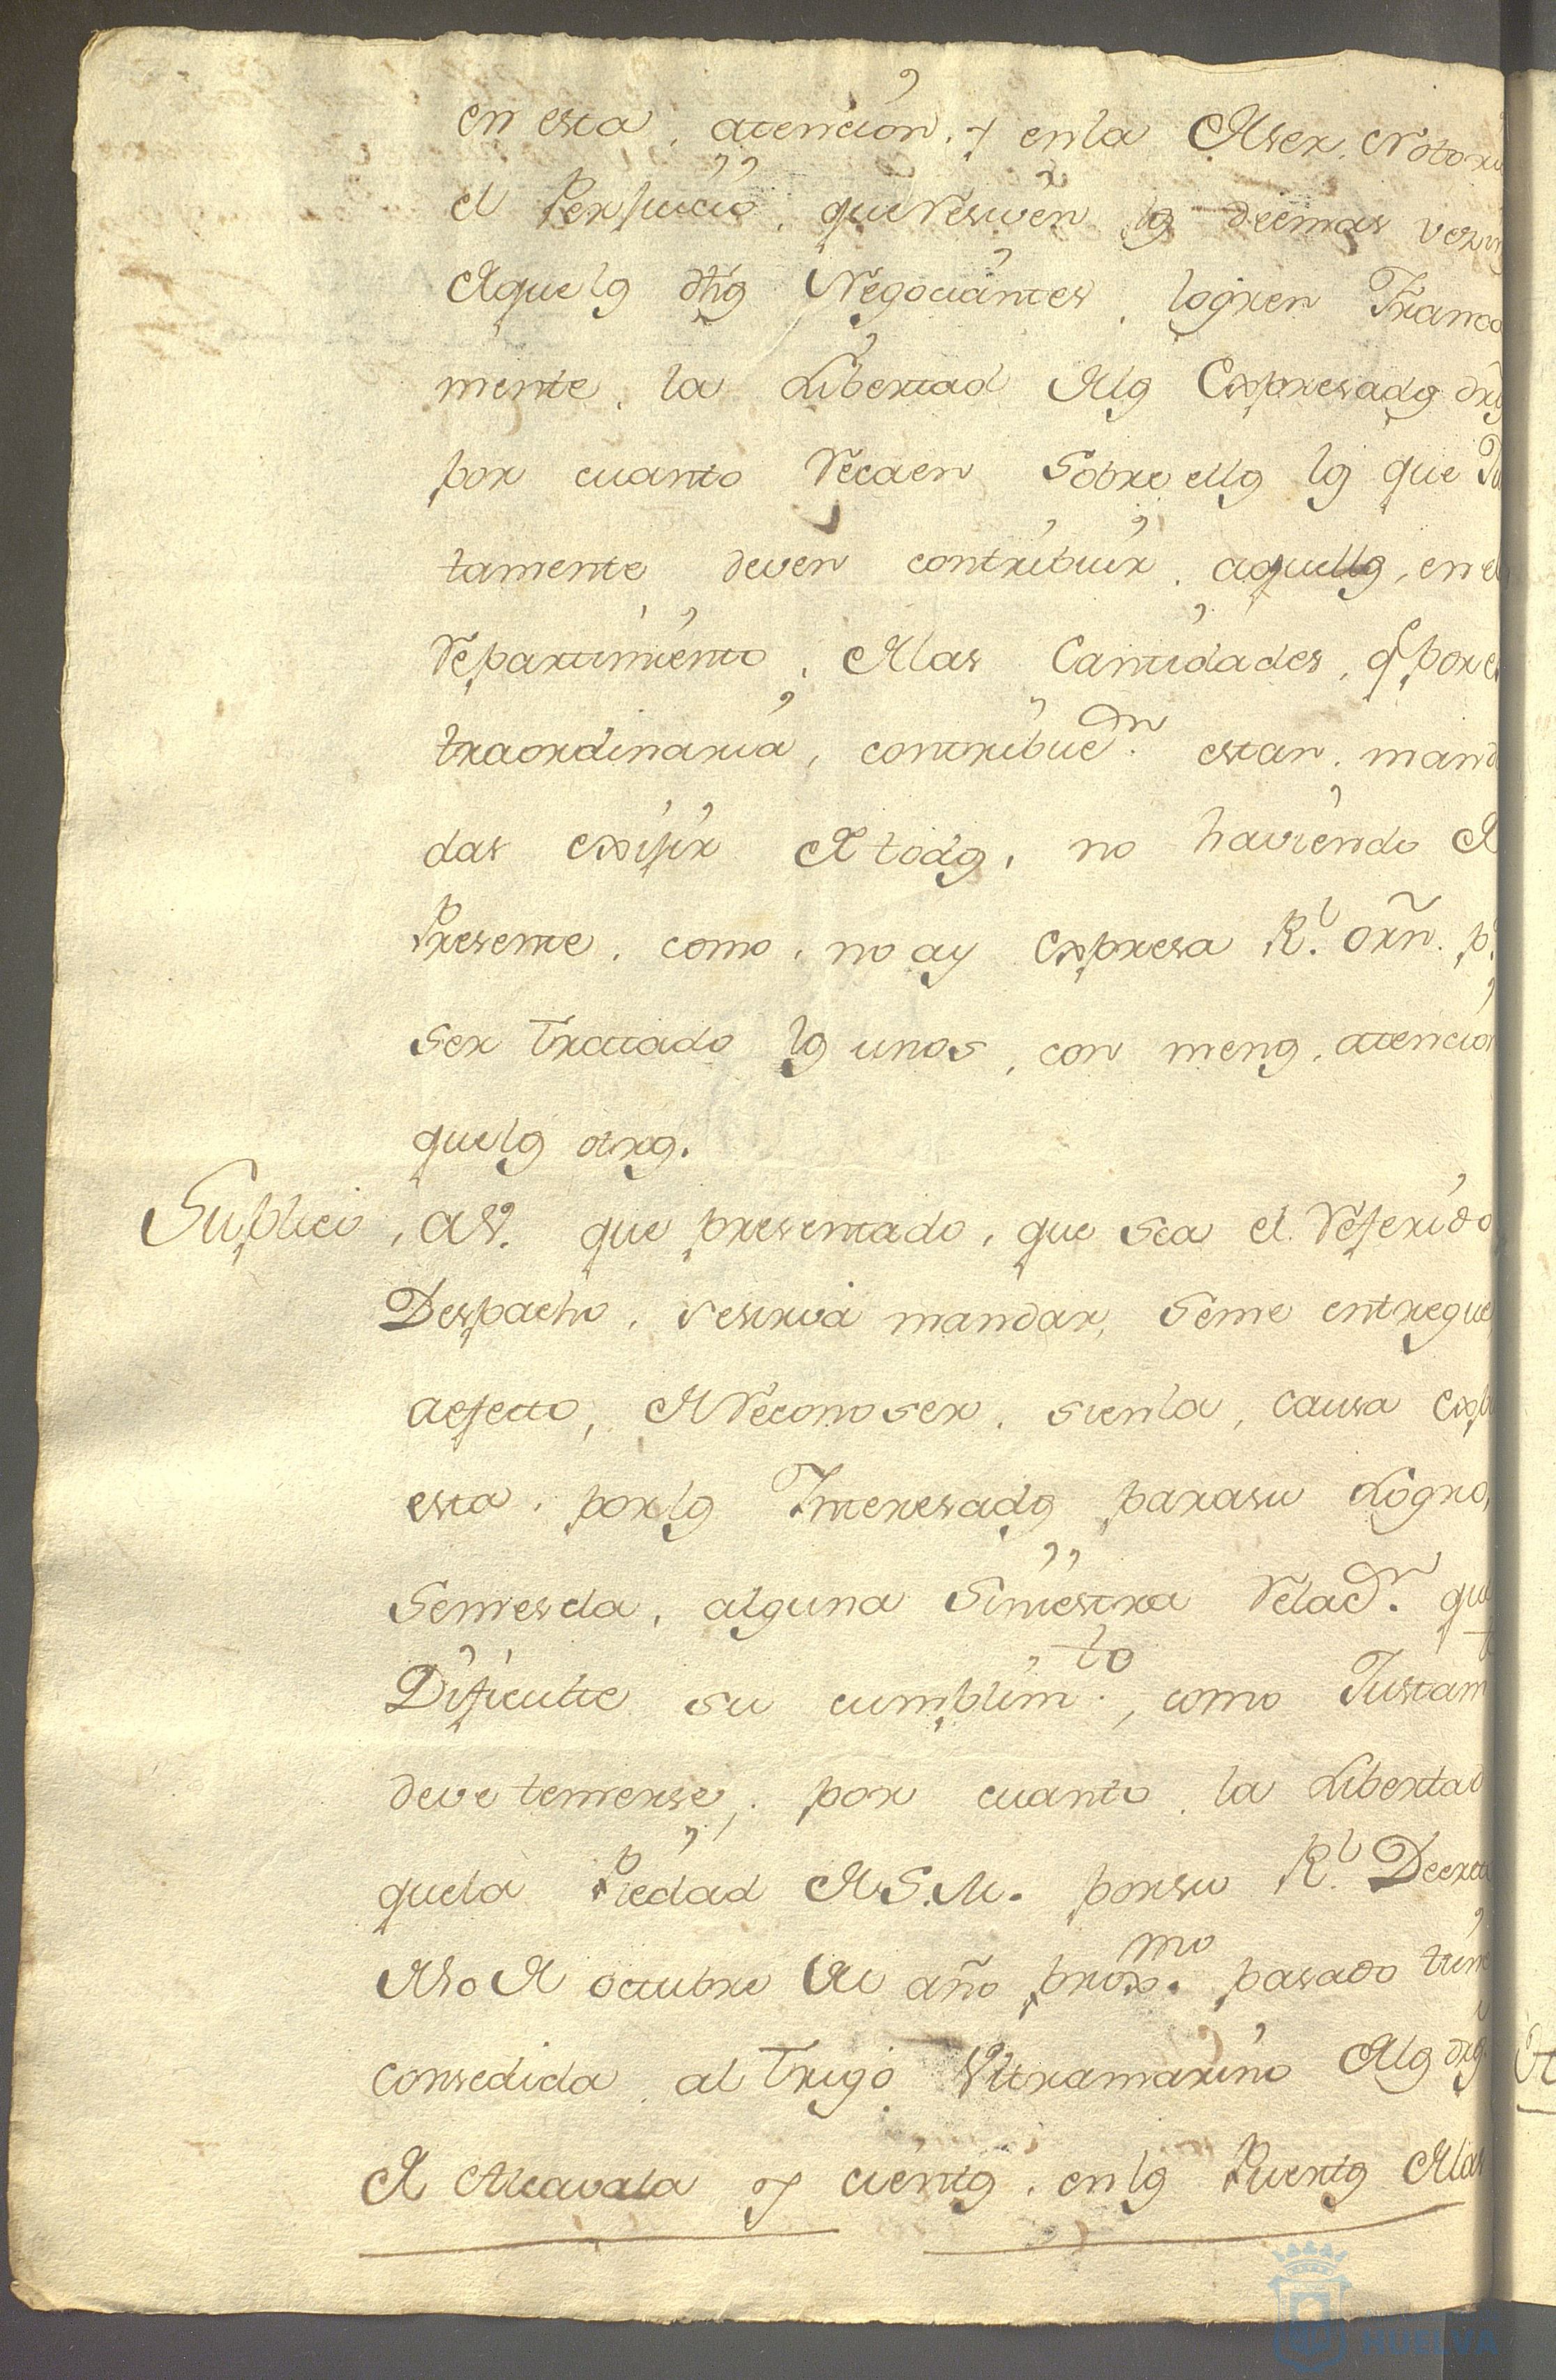 en esta, atencion, y en la de ser, Notori
el Perjuicio, que resiven los demas vezin
de que los dhos Negociantes, logren Franca
mente, la Libertad de los Expresados dros
por cuanto recaen sobre ellos los que Ju
tamente deven contribuir, aquellos, en el
repartimiento, de las Cantidades, q por es
traordinaria, contribucn. estan, mand
das exijir de todos, no haviendo de
Presente, como, no ay expresa Rl. orn. pa.
ser tratado los unos, con menos, atencion
que los otros.
Suplico, a V. que presentado, que sea el referido
Despacho, se sirva mandar, se me entregue,
a efecto, de reconoser, si en la, causa exp
esta, por los Interesados para su Logro,
se mescla, alguna Siniestra relacn. que
Dificulte su cumplimto., como Justam
deve temerse, por cuanto, la Libertad
que la Piedad de S. M. por su Rl. Decreto
de 10 de octubre del año proxmo. pasado tiene
consedida, al trigo Ultramarino de los dros
de Alcavala y cientos, en los Puertos de las
HUELVA